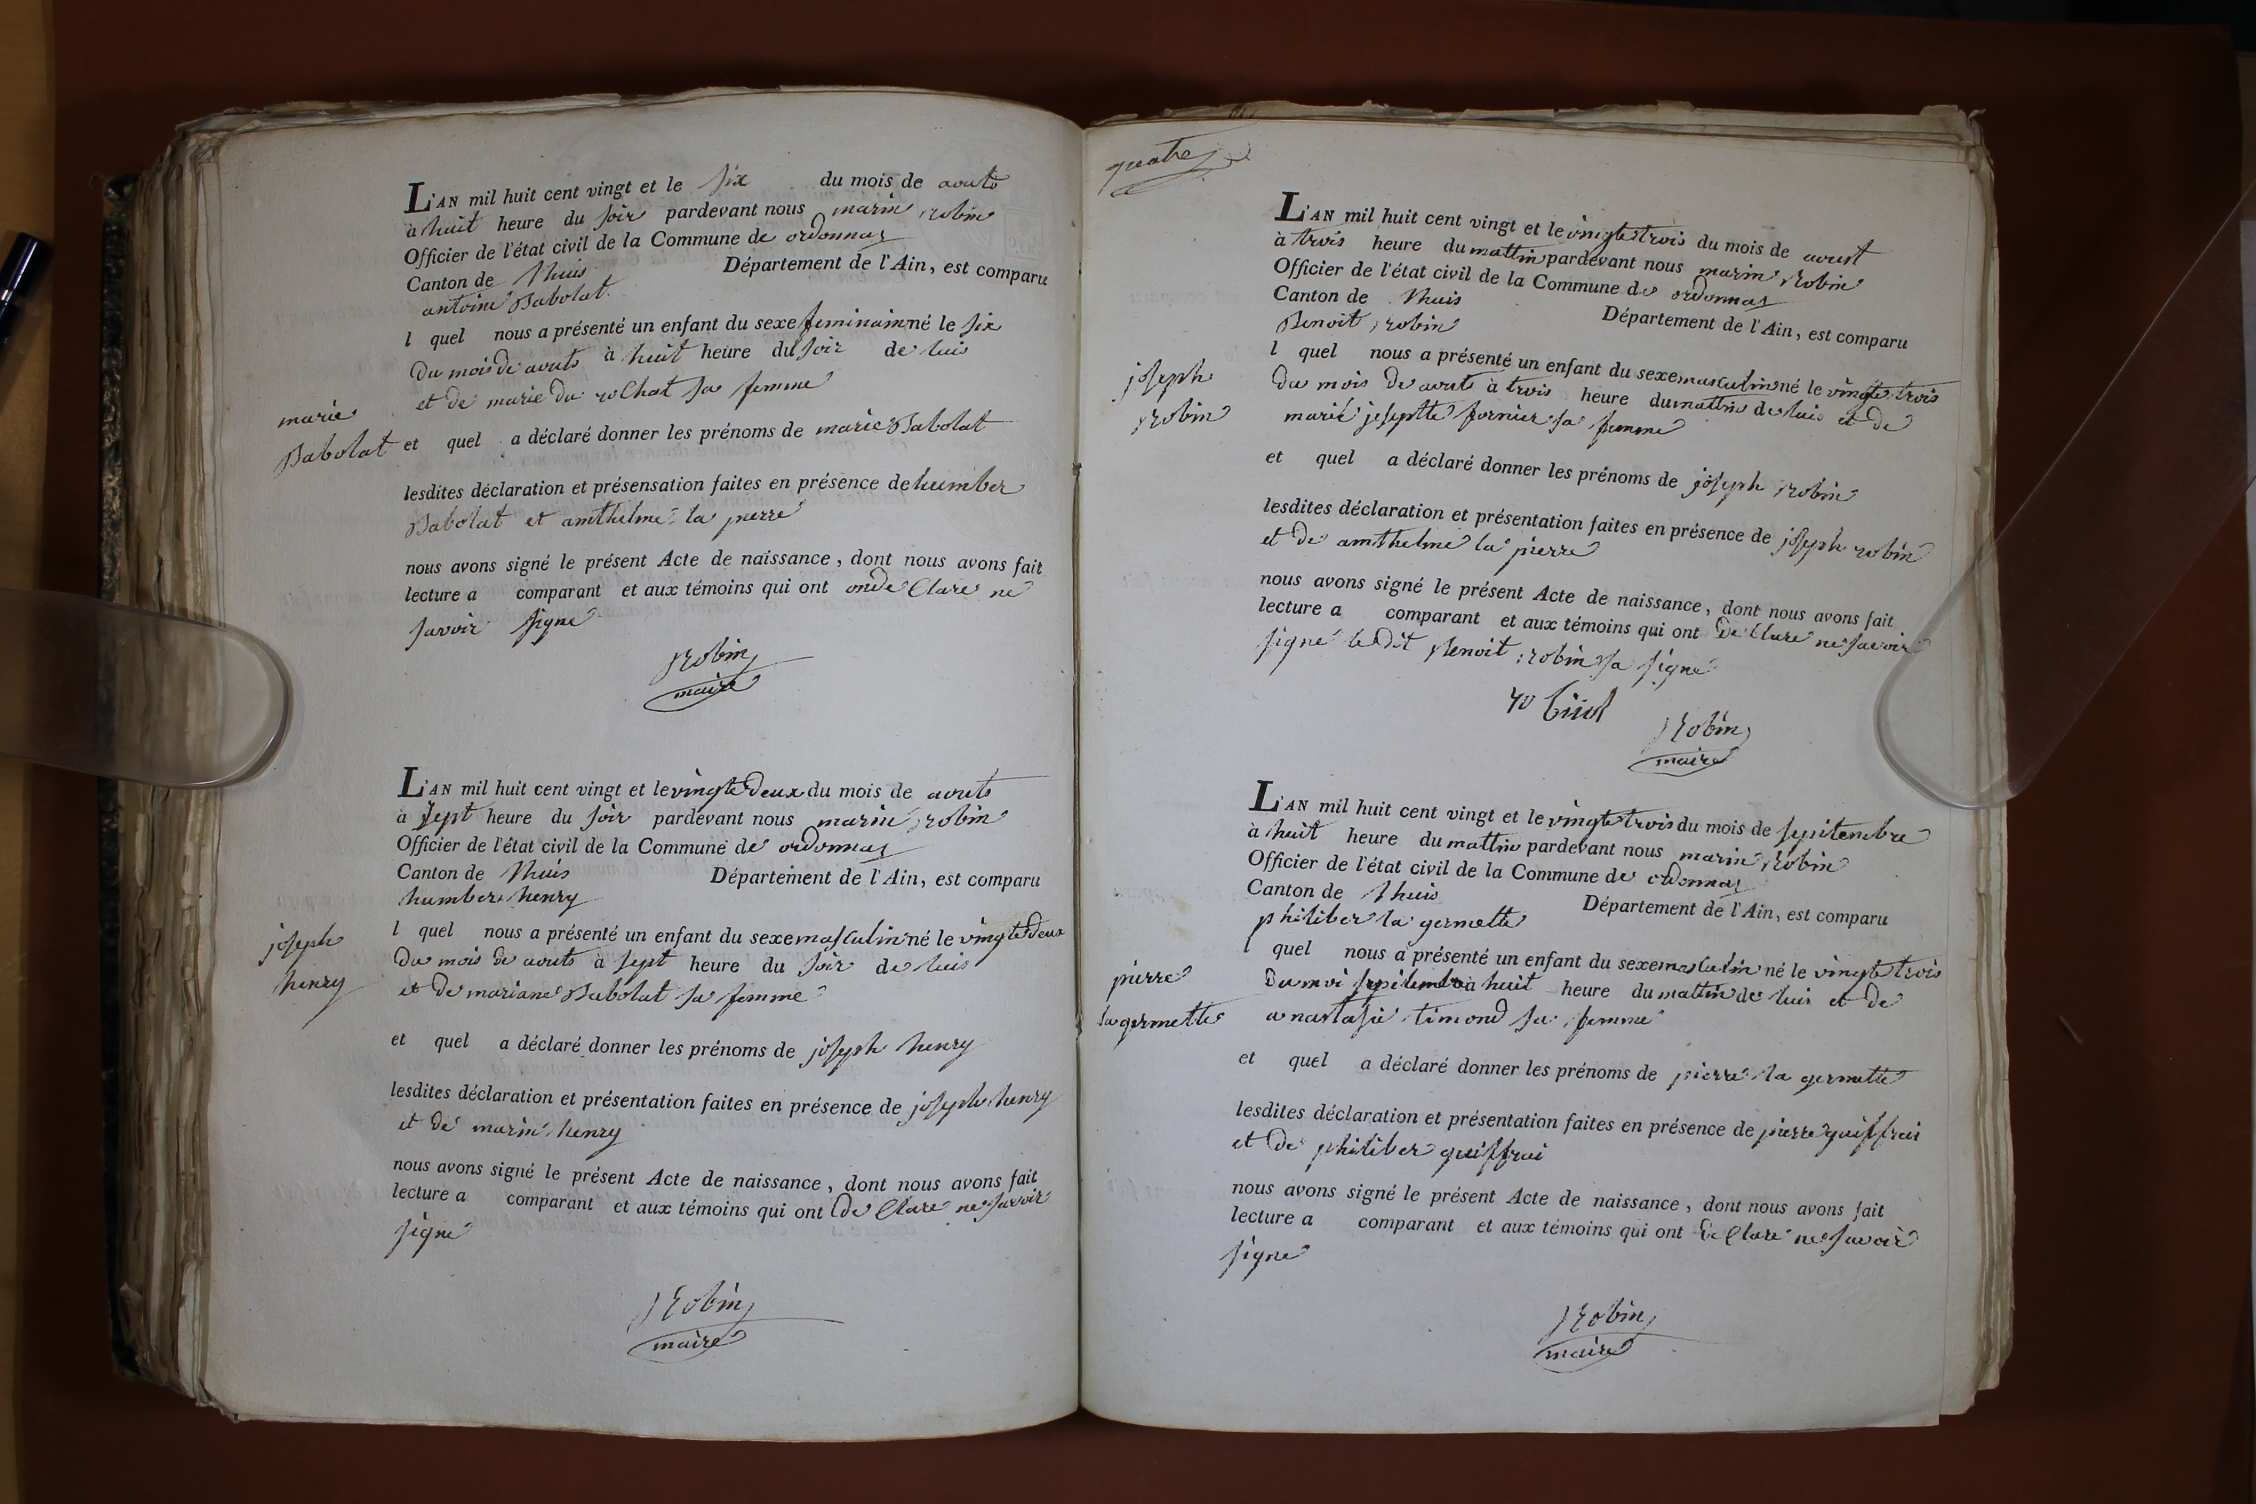 L'AN mil huit cent vingt et le six du mois de avuts
à huit heure du soir pardevant nous marin robin
Officier de l'état civil de la Commune de ordonnas
Canton de lhuis Département de l'Ain, est comparu
antoine Babolat
l quel nous a présenté un enfant du sexe feminain né le six
du mois de avuts à huit heure du soir de luis
et de marie du rochat sa femme
marie
Babolat
et quel a déclaré donner les prénoms de marie Babolat
lesdites déclaration et présensation faites en présence de humber
Babolat et amthelme la pierre
nous avons signé le présent Acte de naissance, dont nous avons fait
lecture a comparant et aux témoins qui ont onde Clare ne
savoir signe
Robin
maire
L'AN mil huit cent vingt et le vingte deux du mois de avuts
à sept heure du soir pardevant nous marin robin
Officier de l'état civil de la Commune de ordonnas
Canton de lhuis Département de l'Ain, est comparu
humber henry
joseph
henry
l quel nous a présenté un enfant du sexe masculin né le vingte deux
du mois de avuts à sept heure du soir de luis
et de mariane Babolat sa femme
et quel a déclaré donner les prénoms de joseph henry
lesdites déclaration et présentation faites en présence de joseph henry
et de marin henry
nous avons signé le présent Acte de naissance, dont nous avons fait
lecture a comparant et aux témoins qui ont de Clare ne savoir
signe
Robin
maire
quatre
L'AN mil huit cent vingt et le vingte trois du mois de avust
à trois heure du mattin pardevant nous marin Robin
Officier de l'état civil de la Commune de ordonnas
Canton de lhuis Département de l'Ain, est comparu
Benoit robin
joseph
robin
l quel nous a présenté un enfant du sexe masculin né le vingte trois
du mois de avuts à trois heure du mattin de luis et de
marié josephte fornier sa femme
et quel a déclaré donner les prénoms de joseph robin
lesdites déclaration et présentation faites en présence de joseph robin
et de amthelme la pierre
nous avons signé le présent Acte de naissance, dont nous avons fait
lecture a comparant et aux témoins qui ont de Clare ne savoir
signe le dit Benoit robin sa signe
Robin
maire
L'AN mil huit cent vingt et le vingte trois du mois de sepitembre
à huit heure du mattin pardevant nous marin Robin
Officier de l'état civil de la Commune de ordonnas
Canton de lhuis Département de l'Ain, est comparu
philiber la germette
pierre
la germette
l quel nous a présenté un enfant du sexe masculin né le vingte trois
du moi sepitembre à huit heure du mattin de luis et de
anastasie timond sa femme
et quel a déclaré donner les prénoms de pierre la germette
lesdites déclaration et présentation faites en présence de pierre guiffrai
et de philiber guiffrai
nous avons signé le présent Acte de naissance, dont nous avons fait
lecture a comparant et aux témoins qui ont de Clare ne savoir
signe
Robin
maire